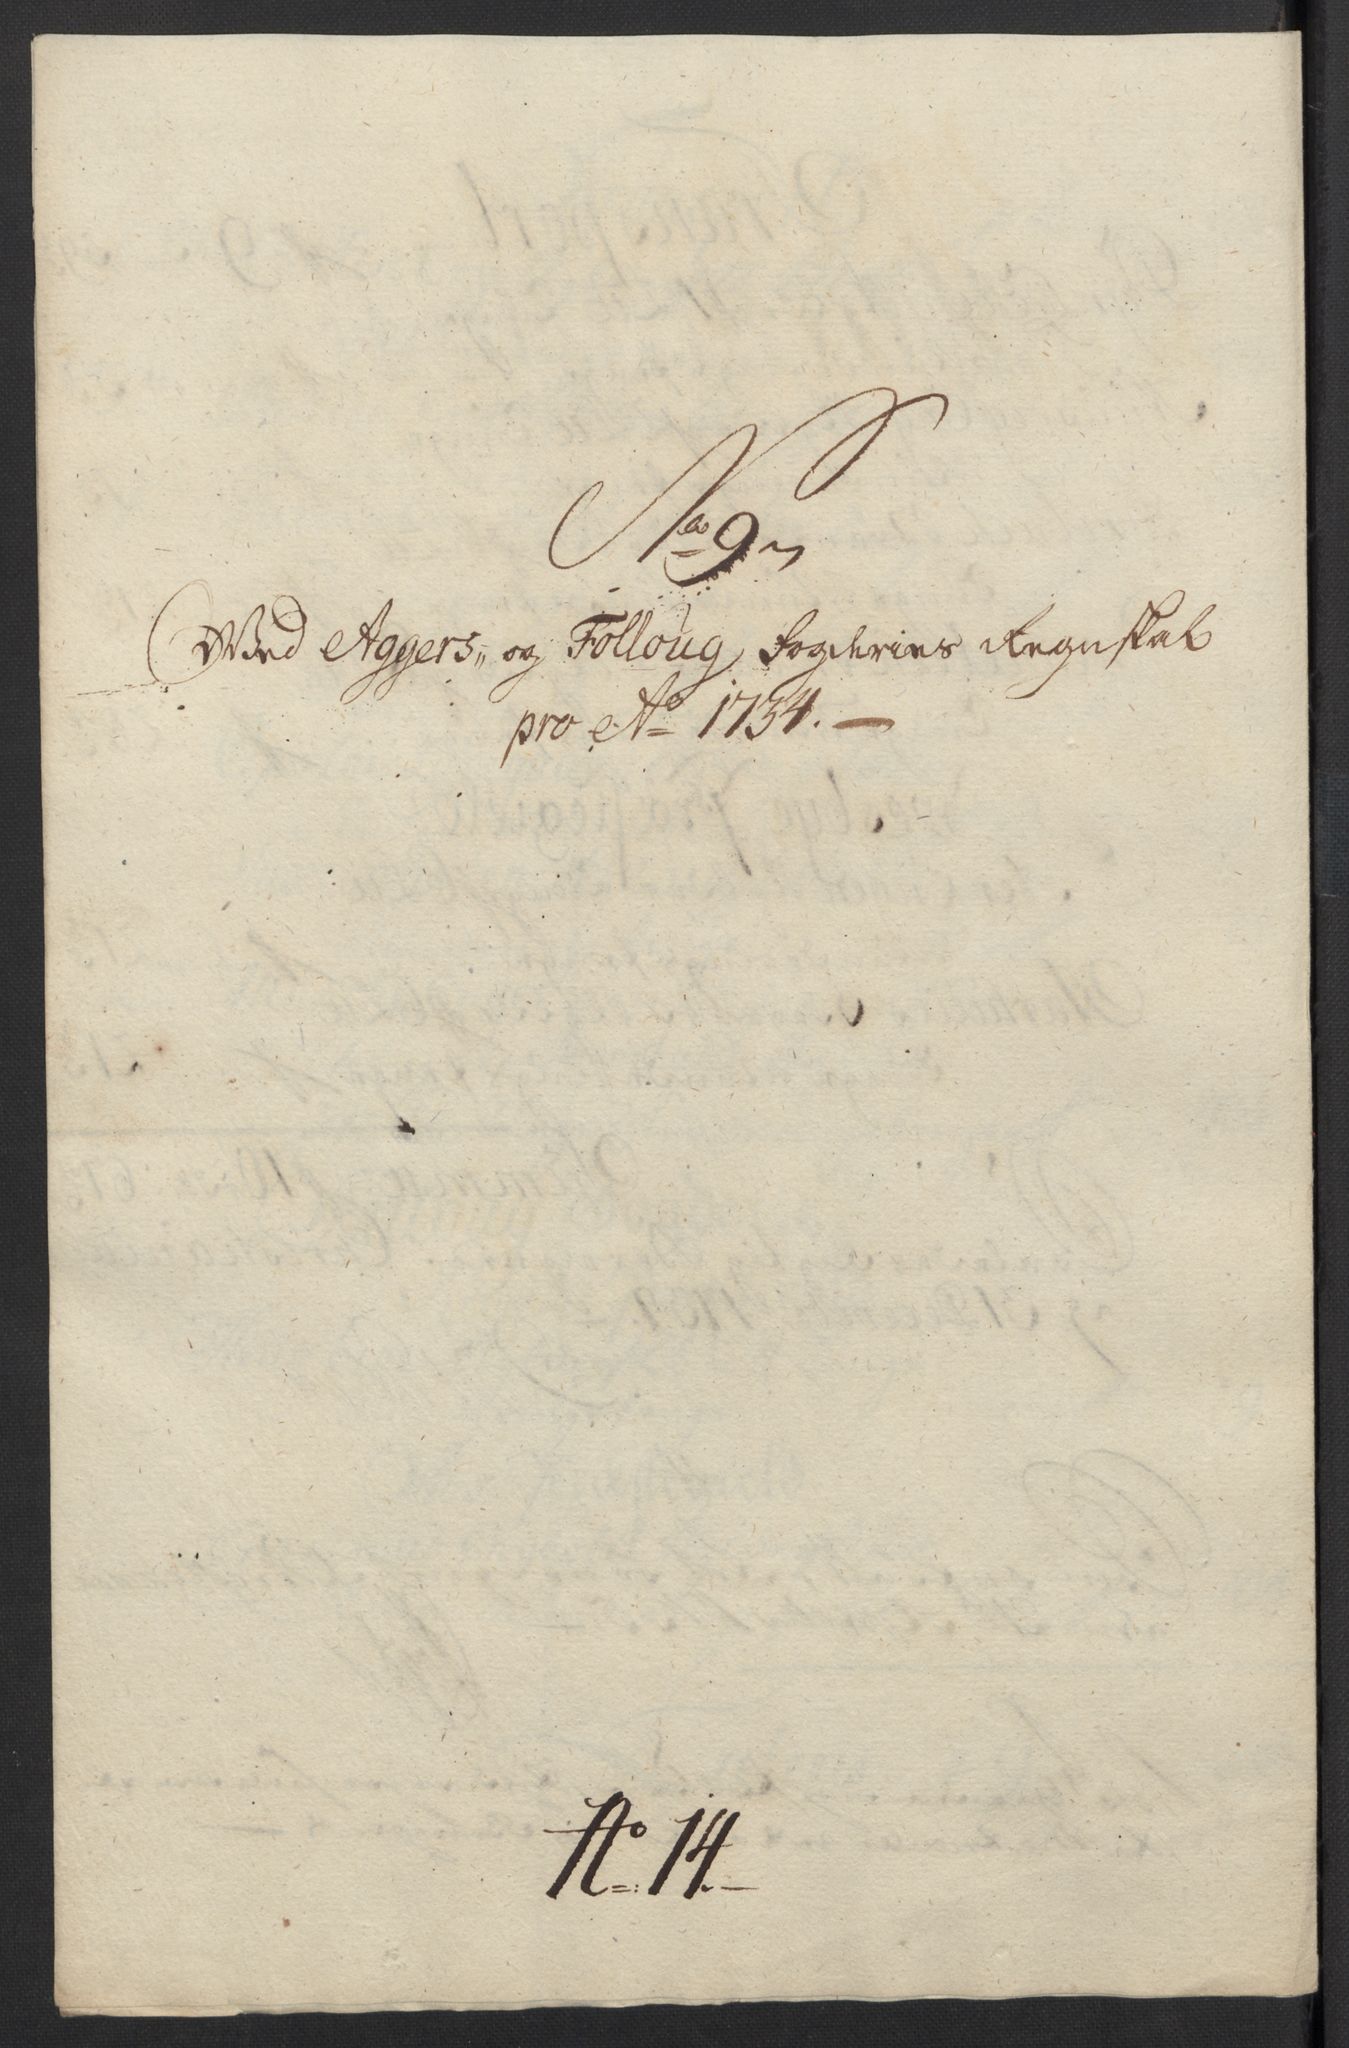 No 9
Wed Aggers,, og Folloug fogderies Regnskab
pro Ao 1734.
No 14.